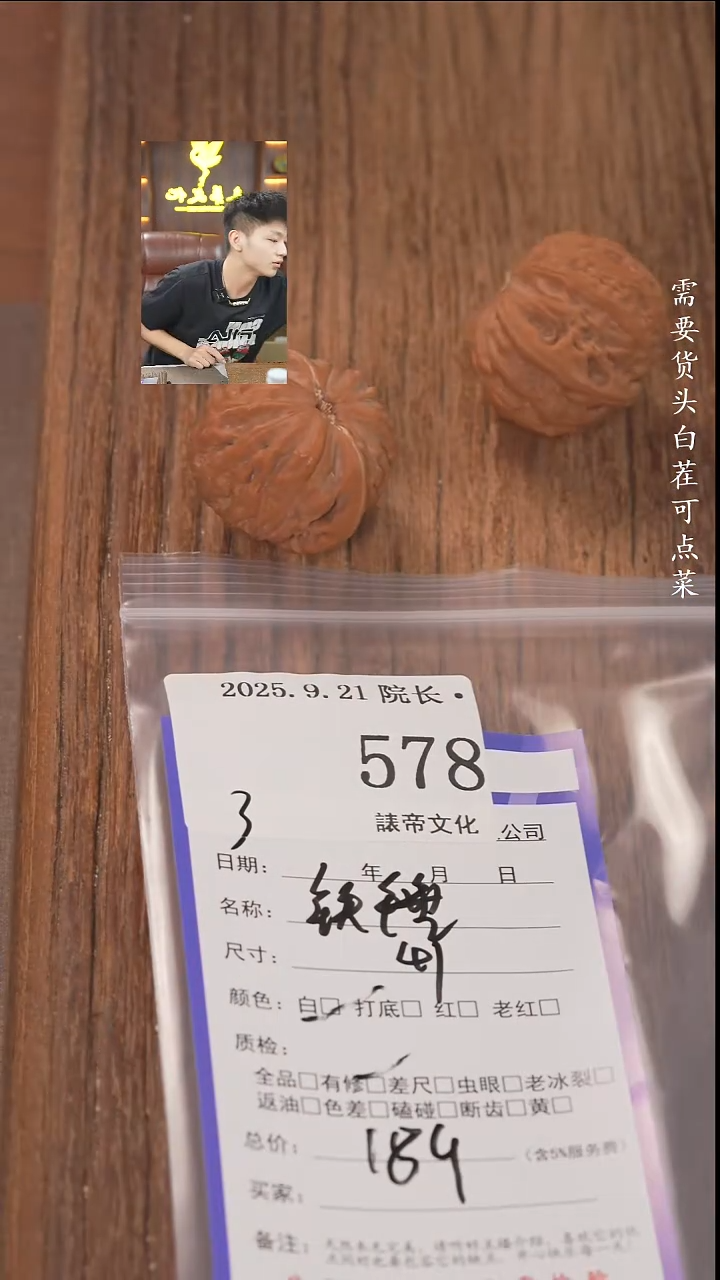 需要货头白茬可点菜
2025.9.21 院长·
578
3
諘帝文化 公司
日期: 年 月 日
名称: 铁
尺寸: 41
颜色: 白□ 打底□ 红□ 老红□
质检:
全品□有修□差尺□虫眼□老冰裂□
返油□色差□磕碰□断齿□黄□
总价: 184 (含5%服务费)
买家:
备注: